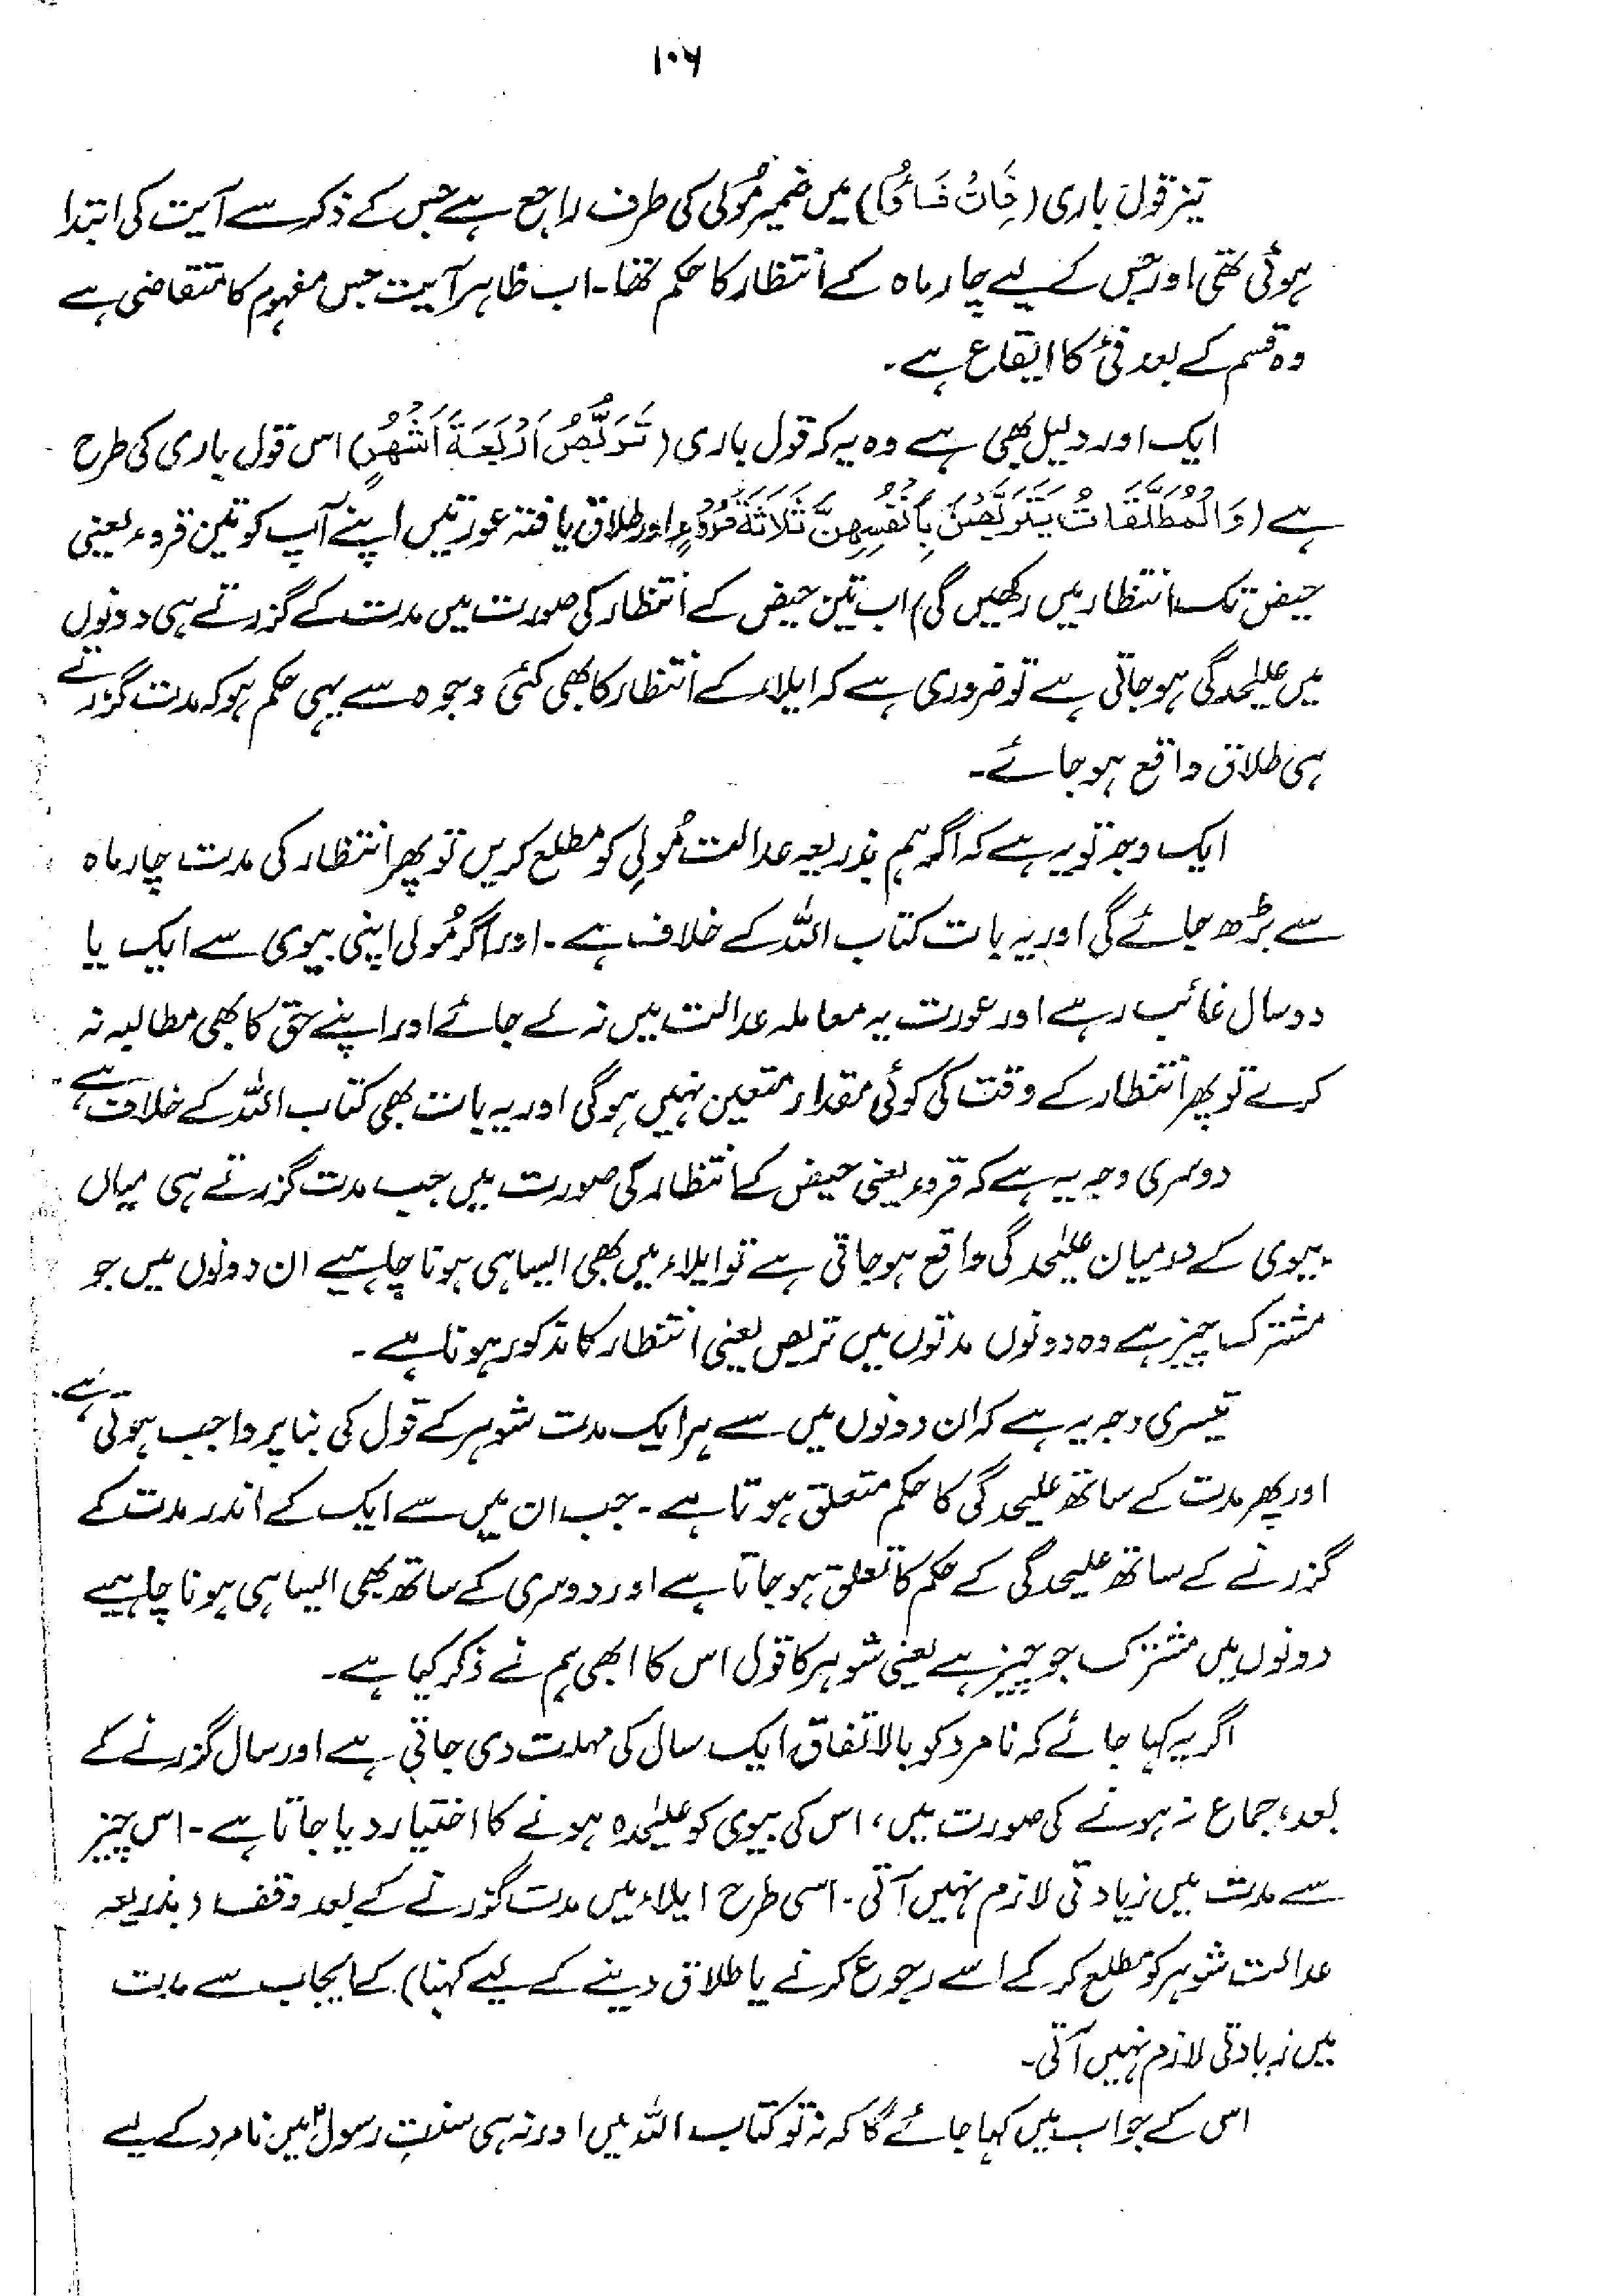 ۱۰۶
نیز قول باری (فَاِنْ فَاءُوْا) میں ضمیر مُولی کی طرف راجع ہے جس کے ذکر سے آیت کی ابتدا
ہوئی تھی اور جس کے لیے چار ماہ کے انتظار کا حکم تھا۔ اب ظاہر آیت جس مفہوم کا متقاضی ہے
وہ قسم کے بعد فئ کا ایقاع ہے۔
ایک اور دلیل بھی ہے وہ یہ کہ قول باری (تَرَبُّصُ اَرْبَعَةِ اَشْهُرٍ) اس قول باری کی طرح
ہے (وَالْمُطَلَّقَاتُ یَتَرَبَّصْنَ بِاَنْفُسِهِنَّ ثَلَاثَةَ قُرُوْءٍ اور طلاق یافتہ عورتیں اپنے آپ کو تین قروء یعنی
حیض تک انتظار میں رکھیں گی) اب تین حیض کے انتظار کی صورت میں مدت کے گزرتے ہی دونوں
میں علیٰحدگی ہو جاتی ہے تو ضروری ہے کہ ایلاء کے انتظار کا بھی کئی وجوہ سے یہی حکم ہو کہ مدت گزرتے
ہی طلاق واقع ہو جائے۔
ایک وجہ تو یہ ہے کہ اگر ہم بذریعہ عدالت مُولِی کو مطلع کریں تو پھر انتظار کی مدت چار ماہ
سے بڑھ جائے گی اور یہ بات کتاب اللہ کے خلاف ہے۔ اور اگر مُولی اپنی بیوی سے ایک یا
دو سال غائب رہے اور عورت یہ معاملہ عدالت میں نہ لے جائے اور اپنے حق کا بھی مطالبہ نہ
کرے تو پھر انتظار کے وقت کی کوئی مقدار متعین نہیں ہوگی اور یہ بات بھی کتاب اللہ کے خلاف ہے،
دوسری وجہ یہ ہے کہ قروء یعنی حیض کے انتظار کی صورت میں جب مدت گزرتے ہی میاں
بیوی کے درمیان علیٰحدگی واقع ہو جاتی ہے تو ایلاء میں بھی ایسا ہی ہونا چاہیے ان دونوں میں جو
مشترک چیز ہے وہ دونوں مدتوں میں تربص یعنی انتظار کا مذکور ہونا ہے۔
تیسری وجہ یہ ہے کہ ان دونوں میں سے ہر ایک مدت شوہر کے قول کی بنا پر واجب ہوتی ہے۔
اور پھر مدت کے ساتھ علیحدگی کا حکم متعلق ہوتا ہے۔ جب ان میں سے ایک کے اندر مدت کے
گزرنے کے ساتھ علیحدگی کے حکم کا تعلق ہو جاتا ہے اور دوسری کے ساتھ بھی ایسا ہی ہونا چاہیے
دونوں میں مشترک جو چیز ہے یعنی شوہر کا قول اس کا ابھی ہم نے ذکر کیا ہے۔
اگر یہ کہا جائے کہ نامرد کو بالاتفاق ایک سال کی مہلت دی جاتی ہے اور سال گزرنے کے
بعد، جماع نہ ہونے کی صورت میں، اس کی بیوی کو علیٰحدہ ہونے کا اختیار دیا جاتا ہے۔ اس چیز
سے مدت میں زیادتی لازم نہیں آتی۔ اسی طرح ایلاء میں مدت گزرنے کے بعد وقف (بذریعہ
عدالت شوہر کو مطلع کر کے اسے رجوع کرنے یا طلاق دینے کے لیے کہنا) کے ایجاب سے مدت
میں زیادتی لازم نہیں آتی۔
اس کے جواب میں کہا جائے گا کہ نہ تو کتاب اللہ میں اور نہ ہی سنتِ رسولؐ میں نامرد کے لیے